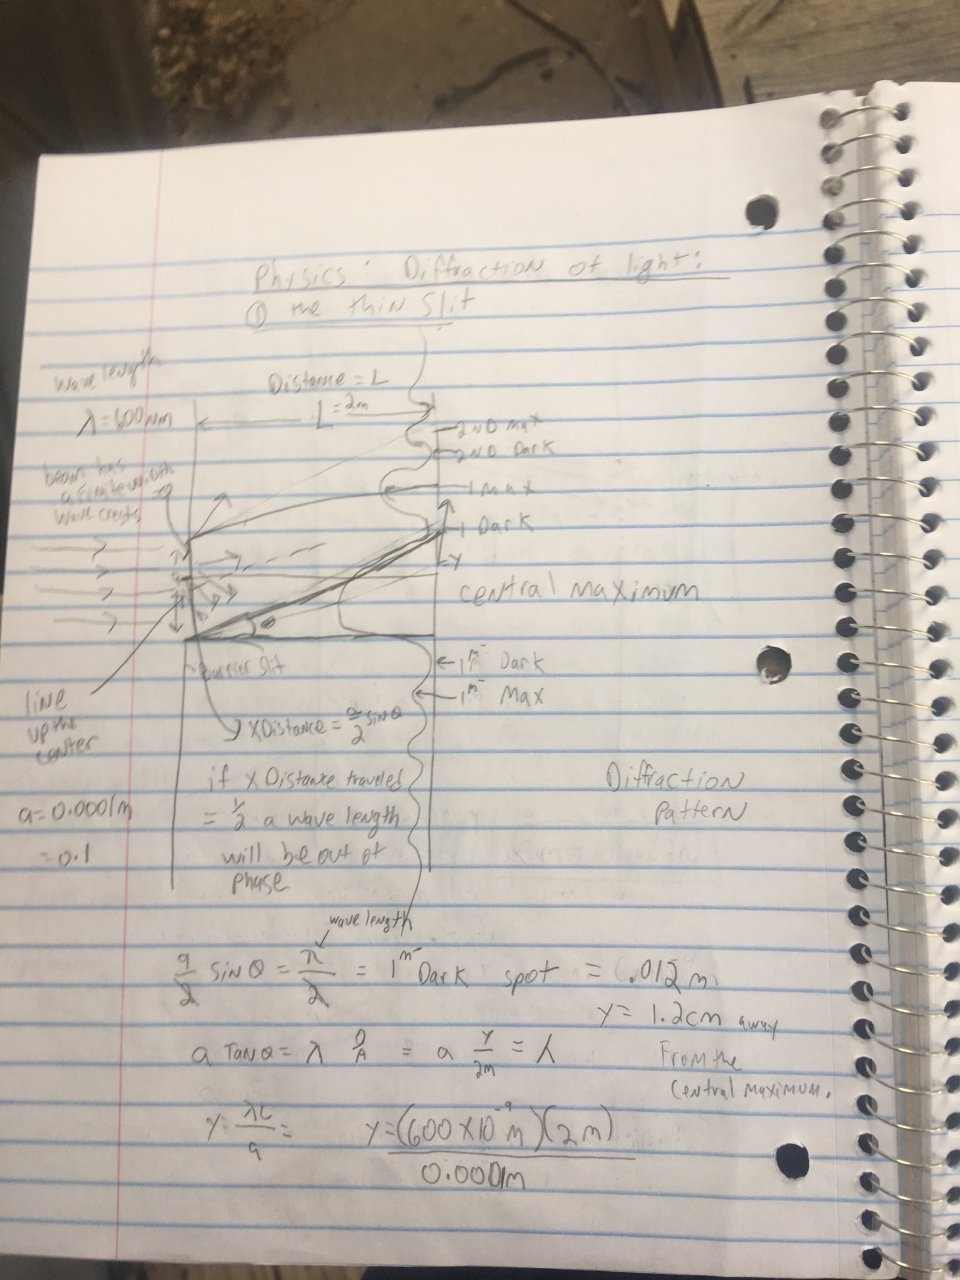 Physics: Diffraction of light:
① The thin Slit
Wave length
λ=600nm
Distance = L
L = 2m
2ND Max
2ND Dark
1 Max
1 Dark
Y
beam has
a finite width
wave crests
Central Maximum
θ
Barrier Slit
1st Dark
1st Max
line
up the
center
X Distance = a/2 sin θ
if X Distance traveled
= 1/2 a wave length
will be out of
phase
Diffraction
Pattern
a=0.0001m
=0.1
wave length
a/2 sin θ = λ/2 = 1st Dark spot = .012 m
Y = 1.2cm away
From the
Central Maximum.
a Tan θ = λ O/A = a Y/2m = λ
Y = λL/a = Y = (600 x 10⁻⁹ m)(2m)
0.0001m